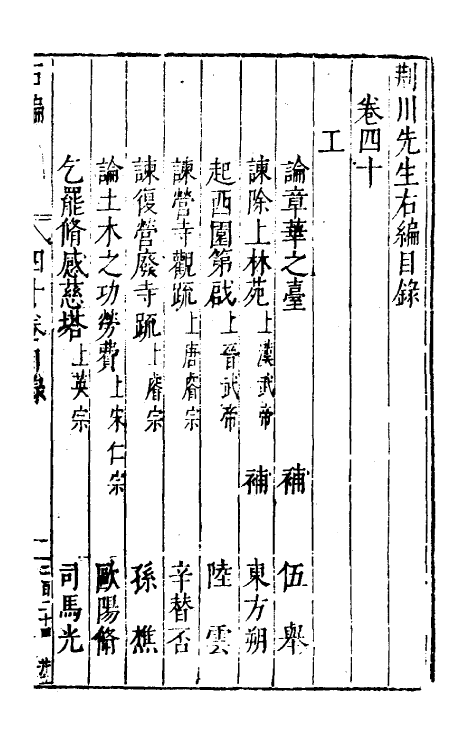 荊川先生右編目錄
卷四十
工
論章華之臺 補 伍舉
諫除上林苑 上漢武帝 補 東方朔
起西園第啟 上晉武帝 陸雲
諫營寺觀䟽 上唐睿宗 辛替否
諫復營廢寺䟽 上睿宗 孫樵
論土木之功勞費 上宋仁宗 歐陽脩
乞罷脩感慈塔 上英宗 司馬光
右編 卷四十目錄 一